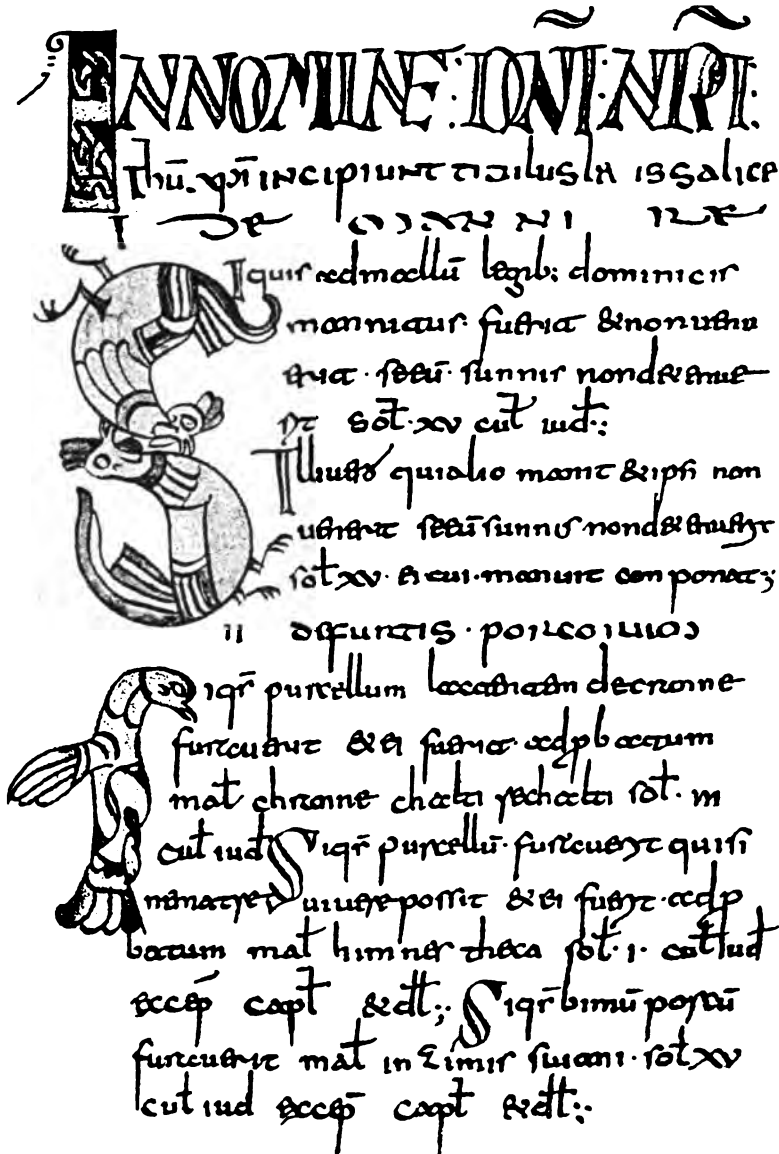 IN NOMINE : DNI : NRI :
ihu xpi incipiunt titulus la is salice
I DE MANNIRE
Si quis ad mallu legib; dominicis
mannitus fuerit & non uenu
erit seeu sunnis nond&enue
rit sol xv cul iud :
Ille uero qui alio manit & ipsi non
uenerit seeu sunnis nond&enuerit
sol xv ei cui manuit conponat ;
II de furtis porcorum
Siqr purcellum lactentem de cranne
furcuerit & ei fuerit adpbatum
mal chranne chalti rechalti sol III
cul iud Siqr purcellu furcuerit qui si
ne matre uiuere possit & ei fuerit adp
batum mal himnes theca sol I cul iud
excep capt & dil ; Siqr bimu porcu
furcuerit mal in zimis suiani sol xv
cul iud excep capt & dil ;